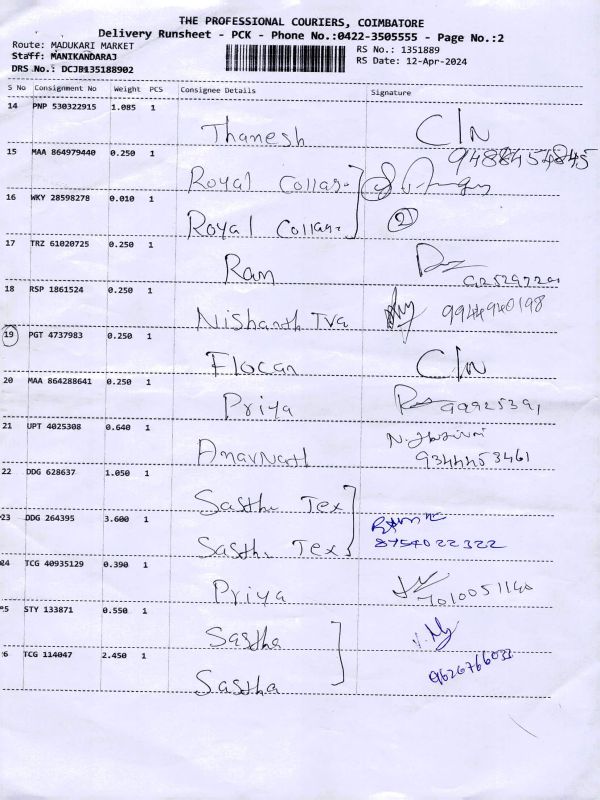 THE PROFESSIONAL COURIERS, COIMBATORE
Delivery Runsheet - PCK - Phone No.:0422-3505555 - Page No.:2
Route: MADUKARI MARKET RS No.: 1351889
Staff: MANIKANDARAJ RS Date: 12-Apr-2024
DRS No.: DCJB135188902
S No Consignment No Weight PCS Consignee Details Signature
14 PNP 530322915 1.085 1
Thanesh C/N
9488454845
15 MAA 864979440 0.250 1
Royal Collar
16 WKY 28598278 0.010 1
Royal Collar 2
17 TRZ 61020725 0.250 1
Ram
18 RSP 1861524 0.250 1
Nishanth Tva 9944940198
19 PGT 4737983 0.250 1
Flocan C/N
20 MAA 864288641 0.250 1
Priya 99925391
21 UPT 4025308 0.640 1
9344453461
22 DDG 628637 1.050 1
Sastha Tex
23 DDG 264395 3.600 1
Sastha Tex 8754022322
24 TCG 40935129 0.390 1
Priya 7010051140
25 STY 133871 0.550 1
Sastha
26 TCG 114047 2.450 1
Sastha